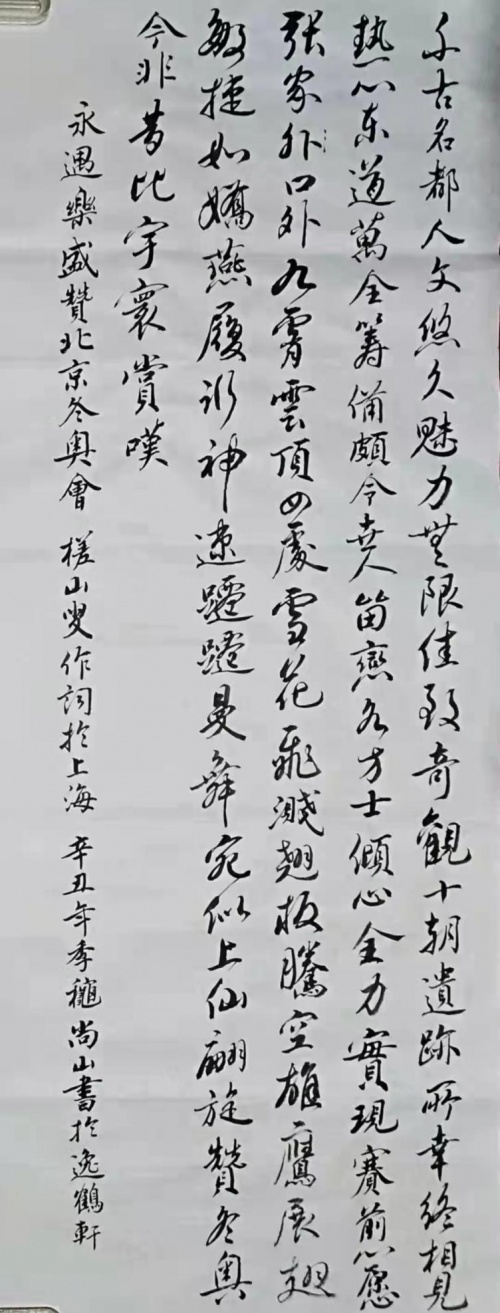 千古名都人文悠久魅力無限佳致奇觀十朝遺跡所幸終相見
熱心東道萬全籌備頗令世人留戀各方士傾心全力實現賽前心愿
張家外口外九霄雲頂四處雪花飛濺翹板騰空雄鷹展翅
敏捷如嬌燕履冰神速蹮蹮曼舞宛似上仙翩旋贊冬奧
今非昔比宇寰賞嘆
永遇樂盛贊北京冬奧會 槎山叟作詞於上海 辛丑年季穐尚山書於逸鶴軒